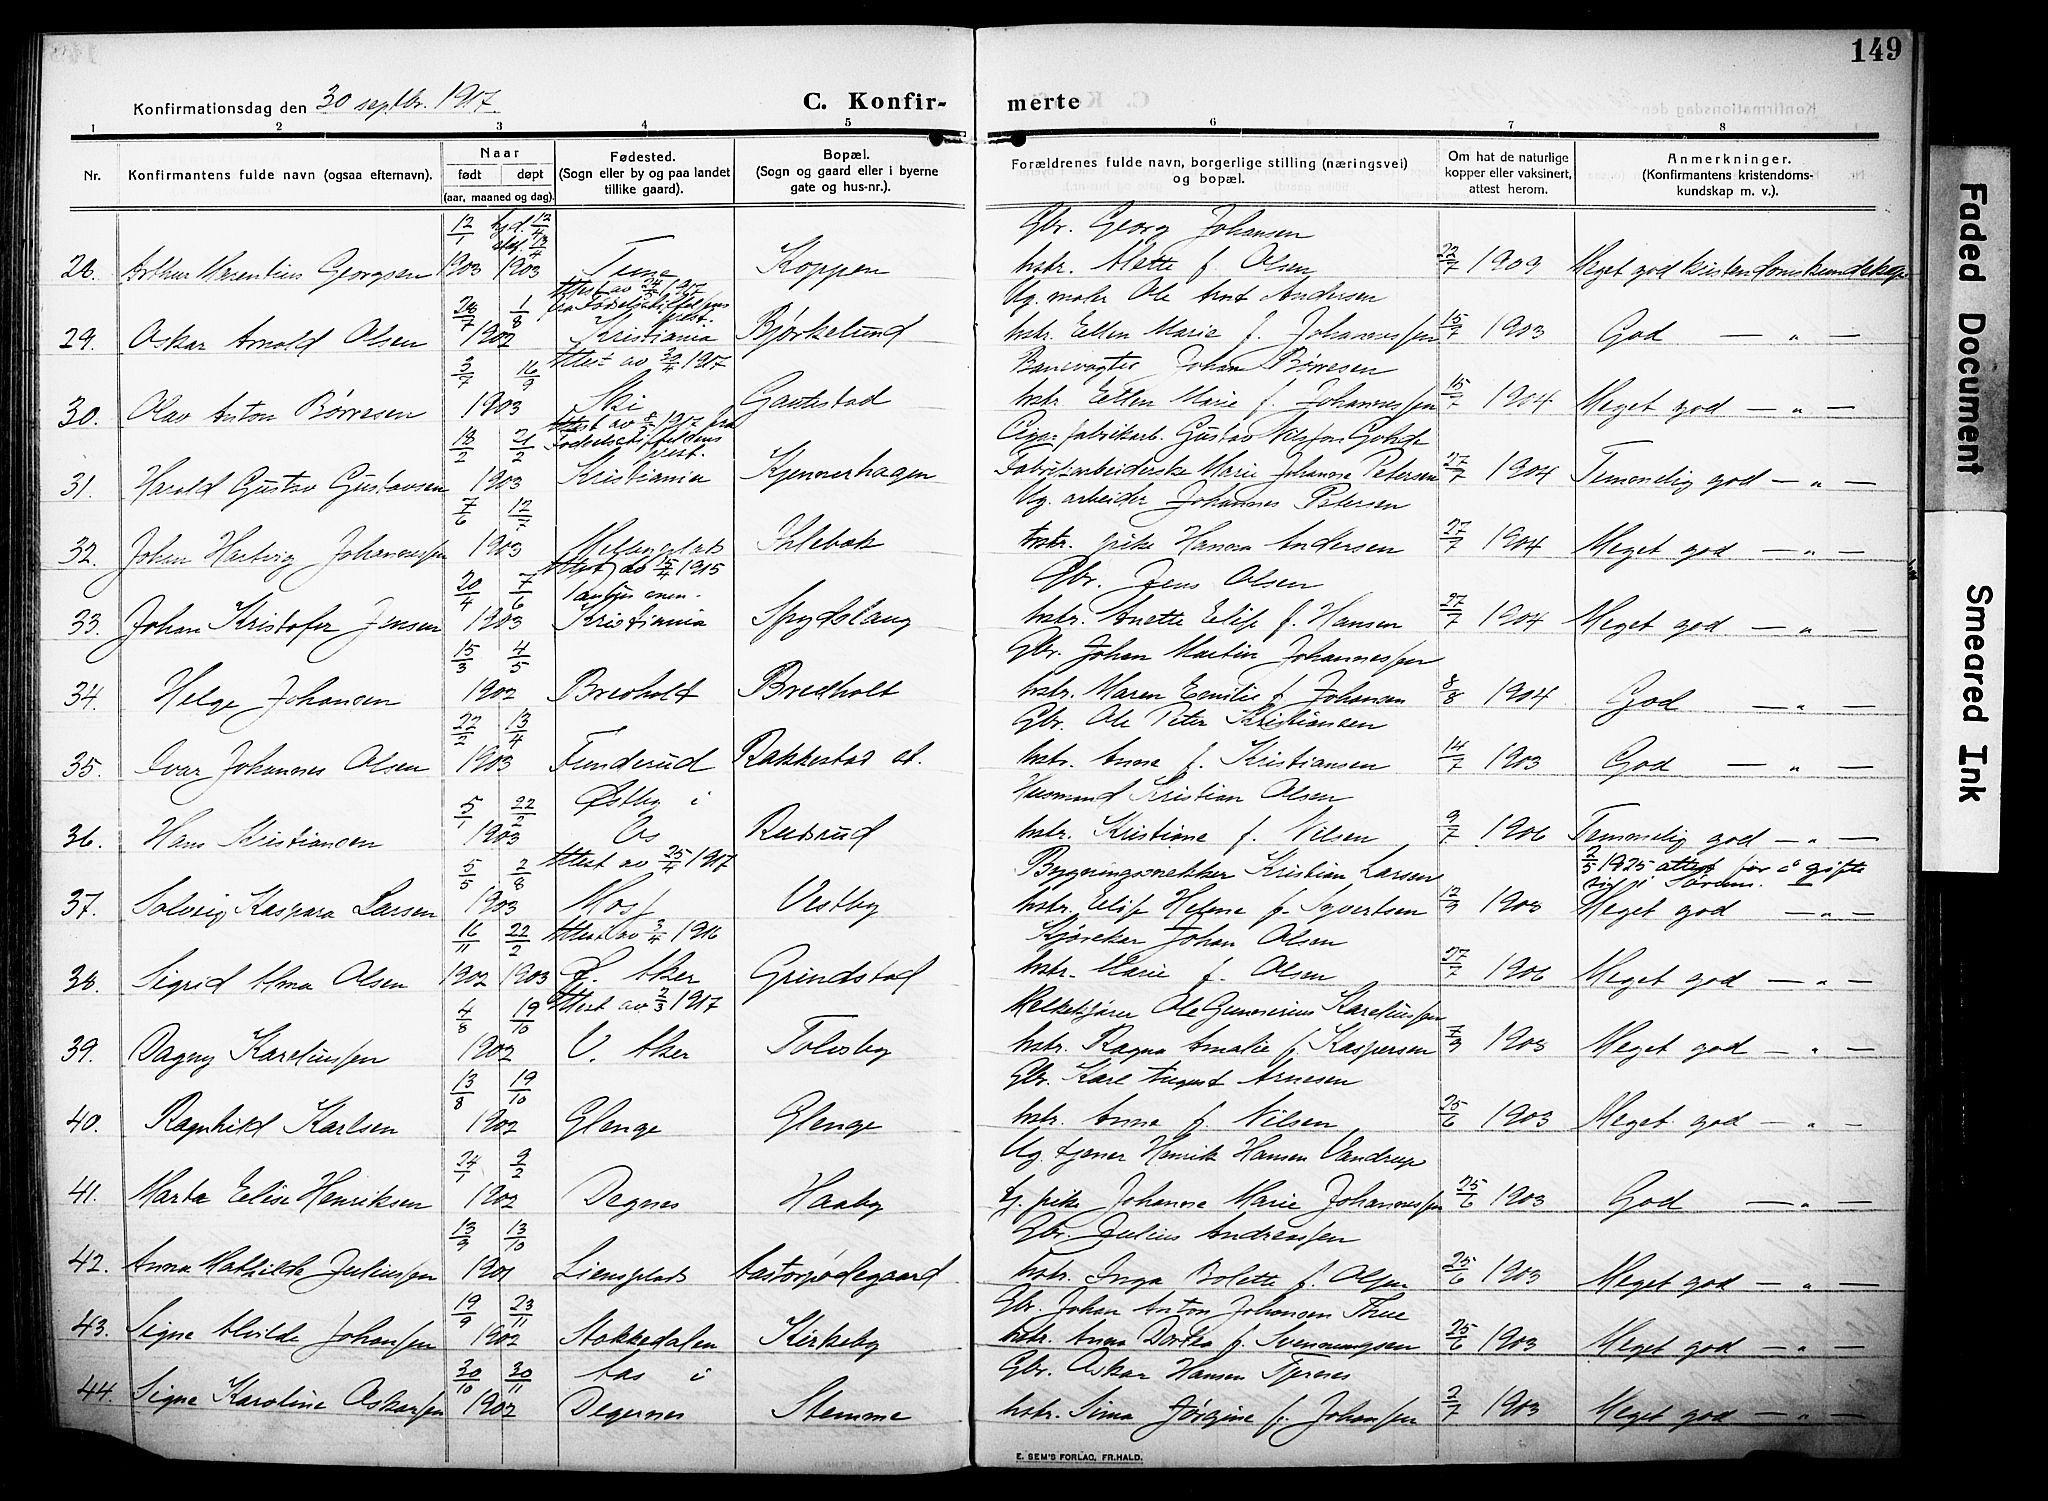 149
Konfirmationsdag den 30 septbr. 1917
C. Konfir- merte
1 2 3 4 5 6 7 8
Nr.
Konfirmantens fulde navn (ogsaa efternavn).
Naar
født døpt
(aar, maaned og dag).
Fødested.
(Sogn eller by og paa landet
tillike gaard).
Bopæl.
(Sogn og gaard eller i byerne
gate og hus-nr.).
Forældrenes fulde navn, borgerlige stilling (næringsvei)
og bopæl.
Om hat de naturlige
kopper eller vaksinert,
attest herom.
Anmerkninger.
(Konfirmantens kristendoms-
kundskap m. v.).
12/1 hjd. 12/4 Gbr. Georg Johansen
28. Arthur Marentius Georgsen 1903 1903 Tune Koppen hstr. Alette f. Olsen 22/7 1909 Meget god kristendomskundskap
28/7 1/8 Attest av 24/4 1917 fra Fødselsstiftelsens prest. Ug. maler Ole Arnt Andersen
29. Oskar Arnold Olsen 1902 Kristiania Bjørkelund hstr. Ellen Marie f. Johannessen 15/7 1903 God — „ —
3/7 16/9 Attest av 30/4 1917 Banevogter Johan Børresen
30. Olav Anton Børresen 1903 Ski Gautestad hstr. Ellen Marie f. Johannessen 15/7 1904 Meget god — „ —
18/2 21/2 Attest av 8/5 1917 fra Fødselsstiftelsens prest. Cigarfabrikarb. Gustav Nilsson
31. Harold Gustav Gustavsen 1903 Kristiania Kjennerhagen Fabrikarbeiderske Marie Johanne Petersen 27/7 1904 Temmelig god — „ —
7/6 12/7 Ug. arbeider Johannes Petersen
32. Johan Hartvig Johannessen 1903 Melbyplads Ihlebak pike Hanna Andersen 27/7 1904 Meget god — „ —
20/4 7/6 Attest av 15/4 1915 Gbr. Jens Olsen
33. Johan Kristofer Jensen 1903 Kristiania Spydslaug hstr. Anette Elise f. Hansen 27/7 1904 Meget god — „ —
15/3 4/5 Gbr. Johan Martin Johannessen
34. Helge Johansen 1902 Bredholt Bredholt hstr. Maren Emilie f. Johansen 8/8 1904 God — „ —
22/2 13/4 Gbr. Ole Peter Kristiansen
35. Ivar Johannes Olsen 1903 Funderud Rakkestad st. hstr. Anna f. Kristiansen 14/7 1903 God — „ —
5/1 22/2 Østby i Husmand Kristian Olsen
36. Hans Kristiansen 1903 Os Rudsrud hstr. Kristiane f. Nilsen 9/7 1906 Temmelig god — „ —
5/5 2/8 Attest av 25/4 1917 Bygningssnekker Kristian Larsen 2/5 1925 attest for å gifte sig i Sørum.
37. Solveig Kaspara Larsen 1903 Moss Vestby hstr. Elise Helene f. Syvertsen 12/9 1903 Meget god — „ —
16/11 22/2 Attest av 3/4 1916 Kjørekar Johan Olsen
38. Sigrid Alma Olsen 1902 1903 Ø. Aker Grindstad hstr. Marie f. Olsen 27/7 1906 Meget god — „ —
4/8 19/10 Attest av 2/3 1917 Melkekjører Ole Gunerius Kareliussen
39. Dagny Kareliussen 1902 V. Aker Tolvsby hstr. Ragna Amalie f. Kaspersen 7/9 1903 Meget god — „ —
13/8 19/10 Gbr. Karl August Arnesen
40. Ragnhild Karlsen 1902 Glenge Glenge hstr. Anna f. Nilsen 25/6 1903 Meget god — „ —
24/1 9/2 Ug. tjener Henrik Hansen Vandrup
41. Marta Elise Henriksen 1902 Degnes Haaby tj. pike Johanne Marie Johannessen 25/6 1903 God — „ —
13/9 13/10 Gbr. Julius Andreassen
42. Anna Mathilde Juliussen 1901 Liensplads Aastorpødegaard hstr. Inga Bolette f. Olsen 25/6 1903 Meget god — „ —
19/9 23/11 Gbr. Johan Anton Johansen Thue
43. Signe Alvilde Johansen 1902 Stokkedalen Kirkeby hstr. Anna Dortea f. Svenningsen 25/6 1903 Meget god — „ —
30/10 30/11 Aas i Gbr. Oskar Hansen
44. Signe Karoline Oskarsen 1902 Degernes Stemme hstr. Sina Jørgine f. Johansen 2/7 1903 Meget god — „ —
E. SEM'S FORLAG, FR.HALD.
Faded Document
Smeared Ink